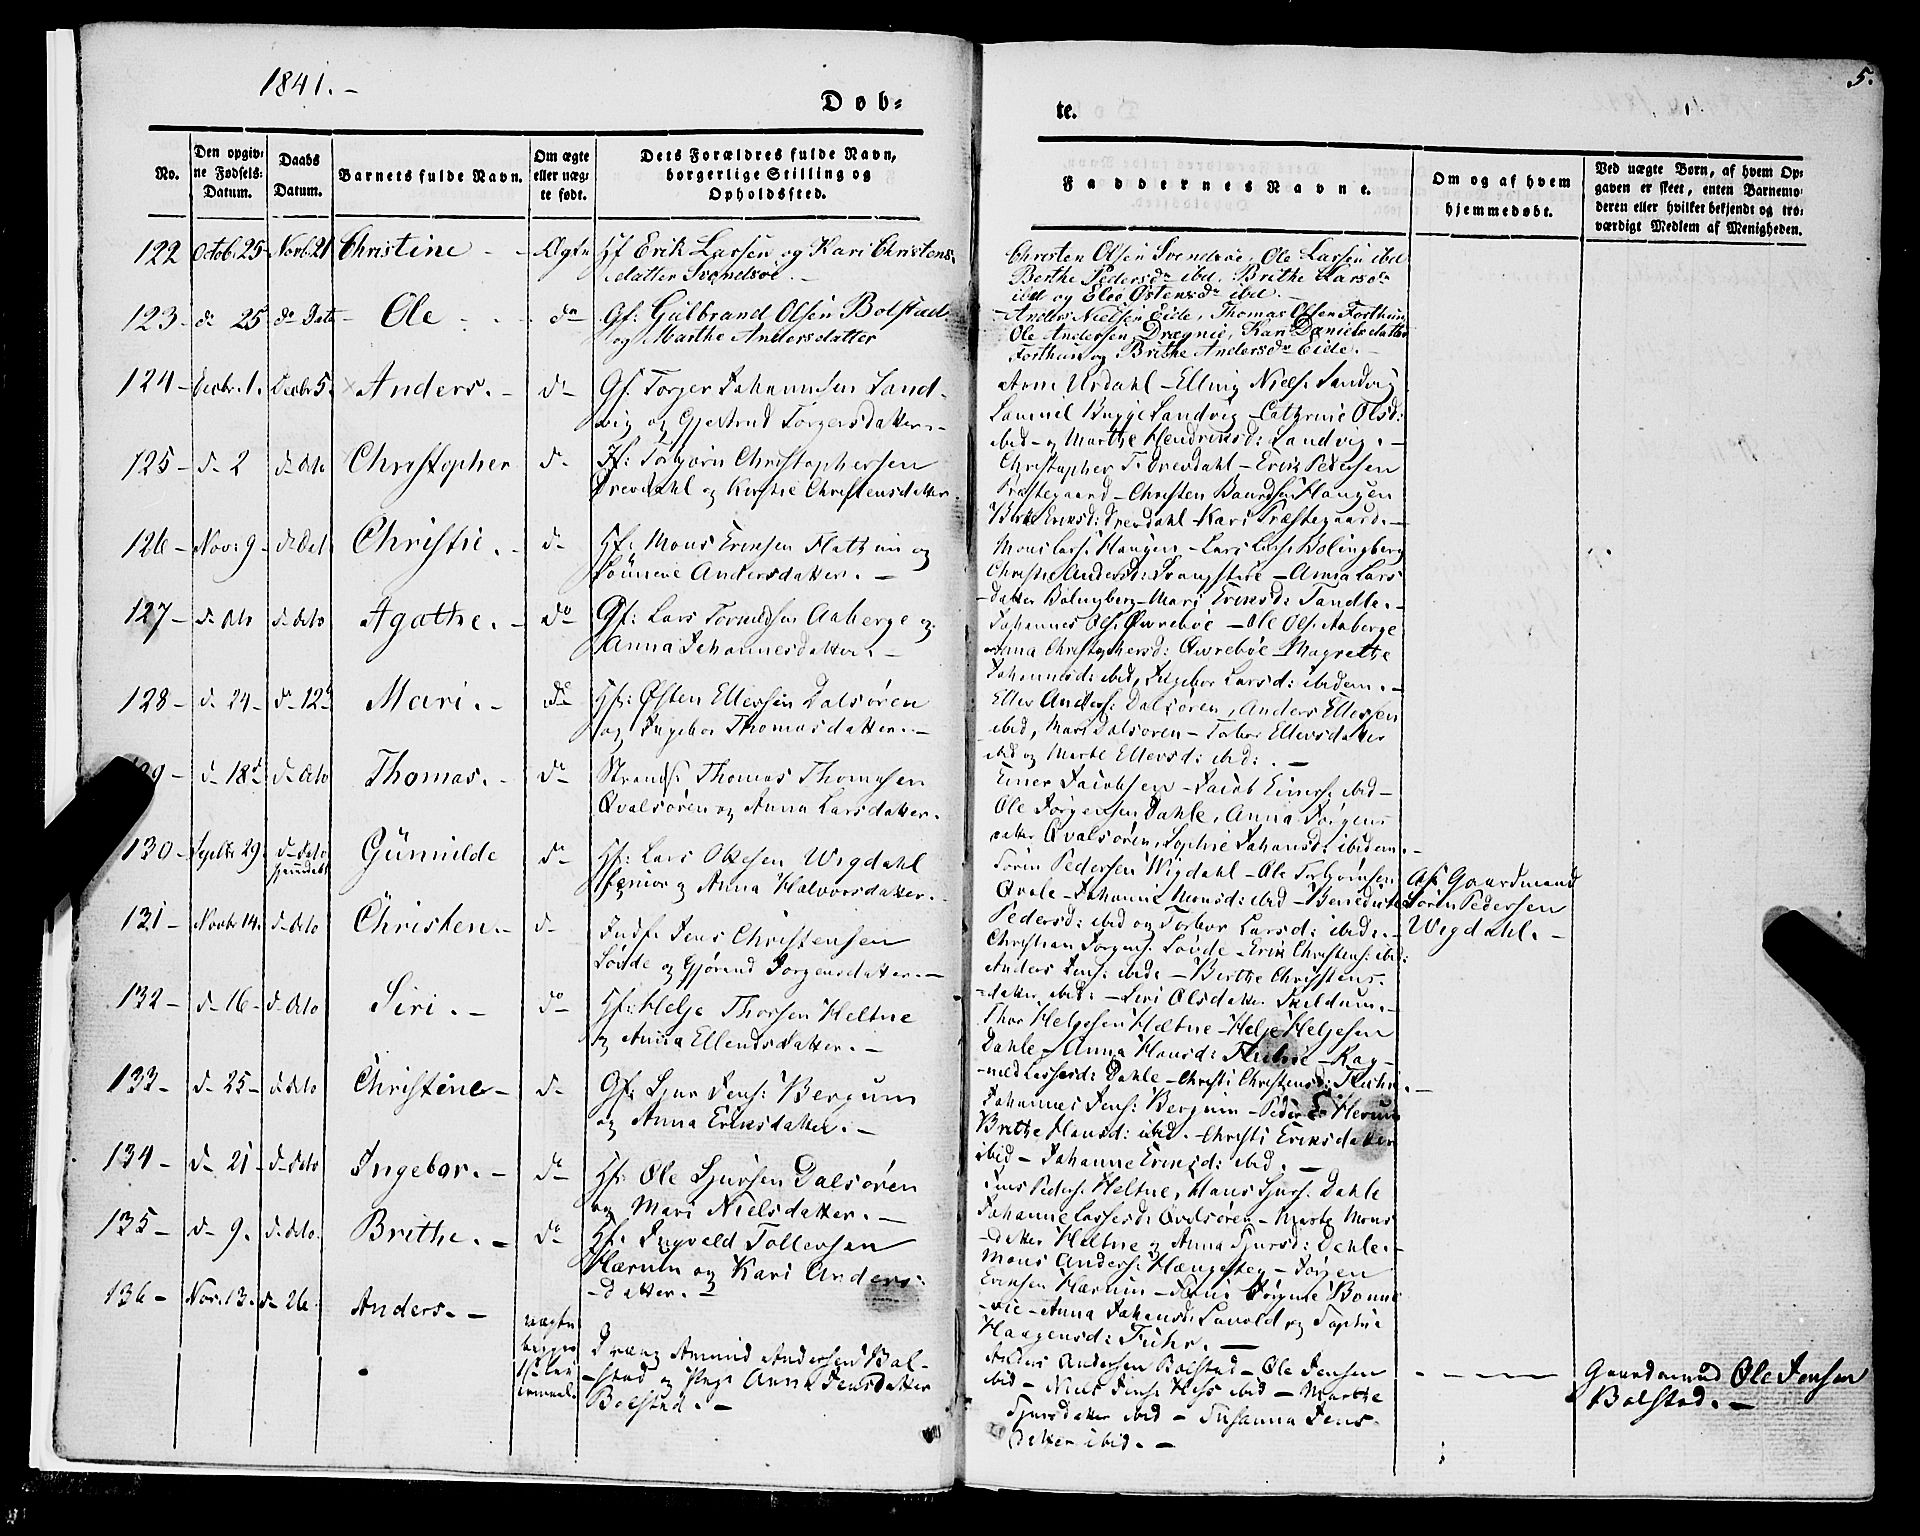 1841.-
5.
Døb-
te.
No.
Den opgiv-
ne Fødsels-
Datum.
Daabs
Datum.
Barnets fulde Navn.
Om ægte
eller uæg-
te født.
Dets Forældres fulde Navn,
borgerlige Stilling og
Opholdssted.
Faddernes Navne.
Om og af hvem
hjemmedøbt.
Ved uægte Børn, af hvem Op-
gaven er skeet, enten Barnemo-
deren eller hvilket bekjendt og tro-
værdigt Medlem af Menigheden.
122 Octob. 25 Novb. 21 Christine - - Ægte Hf Erik Lassen og Kari Christens
datter Svendsøe.-
Christen Olsen Svendsøe, Ole Lassen ibd
Berthe Pedersdr ibd, Brithe Larsdr
ibd og Eloe Ostensdr ibd.-
123 d 25 do Dato Ole - - do Gf: Gulbrand Olsen Bolstad
og Marthe Andersdatter
Anders Nielsen Eide, Thomas Olsen Forthun
Ole Andersen Drægnie, Kari Danielsdatter
Forthun og Brithe Andersdr Eide.-
124 Decbr. 1. Decbr 5. Anders.- d- Gf: Torger Johannesen Sand-
vig og Gjertrud Torgersdatter.-
Arne Urdahl - Elling Niels. Sandvig
Samuel Bugge Sandvig - Cathrine Olsd:
ibid - og Marthe Hendriksd: Sandvig.-
125 d- 2 d- dito Christopher d- Hf: Torbjørn Christophersen
Drevdahl og Kirstie Christensdatter.
Christopher T. Drevdahl - Erik Pedersen
Præstegaard - Christen Baardsen Haugen
Birte Eriksd: Drevdahl - Kari Præstegaard.-
126 Nov: 9 Christie.- d- Hf: Mons Eriksen Flathun og
Sünneve Andersdatter.-
Mons Lars. Haugen - Lars Lars. Bolingberg
Christie Andersd: - Anna Lars
datter Bolingberg - Mari Eriksd: Tandle.-
127 d- dito d- dito Agathe.- do Gf: Lars Aaberge og
Anna Johannesdatter.-
Johannes Ols. Øvrebøe - Ole Ols. Aaberge
Anna Christophersd: Øvrebøe - Magrethe
Johannesd: ibid, Ingebor Larsd: ibidem.-
128 d- 24 d- 12 Mari.- do Hf: Østen Ellersen Dalsøren
og Ingebor Thomasdatter.-
Eller Anders: Dalsøren, Anders Ellersen
ibid, Mari Dalsøren - Torbor Ellersdatter
ibid og Marte Ellersd: ibid:.-
29 d- 18 d- dito Thomas.- do Strands: Thomas Thomesen
Qvalsøren og Anna Larsdatter.
Einer Jacobsen - Jacob Einers. ibid -
Ole Jørgensen Dahle, Anna Jørgens
datter Qvalsøren, Sophie Johansd: ibidem.-
130 Septbr 29. d- dito
hjemdøbt Gunnilde d- Hf: Lars Olesen Wigdahl
senior og Anna Halvorsdatter.
Søren Pedersen Wigdahl - Ole Torbjørnsen
Qvale - Johanne Monsd: ibid - Benedicte
Pedersd: ibid og Torbor Larsd: ibid:.-
Af Gaardmand
Søren Pedersen
Wigdahl.-
131 Novbr 14. d- dito Christen.- d- Indf. Jens Christensen
Løvde og Gjørend Jørgensdatter.-
Christian Jørgens. Løvde - Erik Christens: ibid:
Anders Jens: ibid: - Birthe Christens-
datter ibid: - Siri Olsdatter .-
132 d- 16 d- dito Siri.- do Hf: Helje Thorsen Heltne
og Anna Ellendsdatter.-
Thor Heljesen Heltne - Helje Heljesen
Dahle - Anna Hansd: - Rag-
nild Lassesd: Dahle - Christi Christensd: .-
133 d- 25 d- dito Christine - d- Gf: Sjur Jens: Bergum
og Anna Eriksdatter.-
Johannes Jens: Bergum - Peder Herum
Brithe Hansd: ibid. - Christi Eriksdatter
ibid - Johanne Eriksd: ibid.-
134 d- 21 d- dito Ingebor.- do Hf: Ole Sjursen Dalsøren
og Mari Nielsdatter.-
Jens Peders. Heltne, Hans Sjurs. Dahle
Johanne Lassesd: Qvalsøren - Marte Mons
datter Heltne og Anna Sjursd: Dahle.-
135 d- 9. d- dito Brithe.- do Hf: Ingveld Tollevsen
Hærum og Kari Anders-
datter.-
Mons Anders. - Jørgen
Eriksen Hærum - Jørgine Bonne
vie - Anna Johansd: Lavold og Sophie
Haagensd: Fuhr.-
136 Nov. 13. d- 26 Anders.- uægte
Dreng Amund Andersen Bol-
stad og Pige Anna Jensdatter
Bolstad.-
Anders Andersen Bolstad - Ole Jensen
ibid - Niels Jens. Hess ibid - Marthe
Sjursdatter ibid - Susanna Jens-
datter ibid.-
Gaardmand Ole Jensen
Bolstad.-